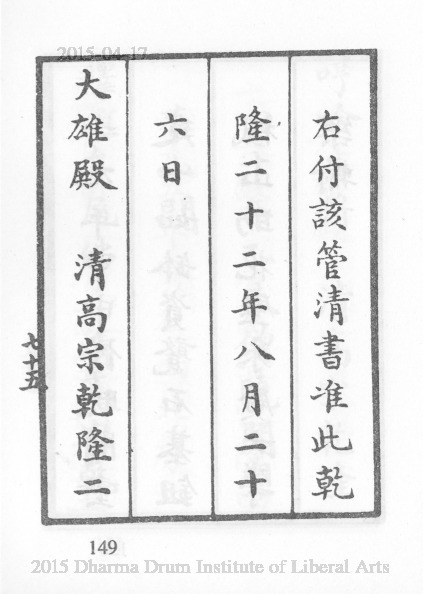 2015-04-17
右付該管清書准此乾
隆二十二年八月二十
六日
大雄殿 清高宗乾隆二
七十五
149
2015 Dharma Drum Institute of Liberal Arts